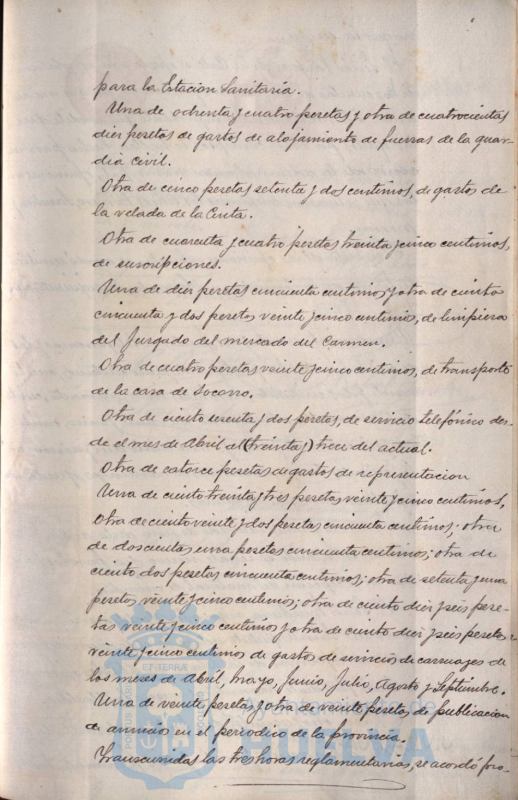 para la Estación Sanitaria.
Una de ochenta y cuatro pesetas y otra de cuatrocientas
diez pesetas de gastos de alojamiento de fuerzas de la guar-
dia civil.
Otra de cinco pesetas setenta y dos centimos, de gastos de
la velada de la Cinta.
Otra de cuarenta y cuatro pesetas treinta y cinco centimos,
de suscripciones.
Una de diez pesetas cincuenta centimos y otra de ciento
cincuenta y dos pesetas veinte y cinco centimos, de limpieza
del Juzgado del mercado del Carmen.
Otra de cuatro pesetas veinte y cinco centimos, de transporte
de la casa de Socorro.
Otra de ciento sesenta y dos pesetas, de servicio telefónico des-
de el mes de Abril al (treinta y) trece del actual.
Otra de catorce pesetas de gastos de representacion
Una de ciento treinta y tres pesetas veinte y cinco centimos,
otra de ciento veinte y dos pesetas cincuenta centimos; otra
de doscientas una pesetas cincuenta centimos; otra de
ciento dos pesetas cincuenta centimos; otra de setenta y una
pesetas veinte y cinco centimos; otra de ciento diez y seis pese-
tas veinte y cinco centimos y otra de ciento diez y seis pesetas
veinte y cinco centimos de gastos de servicios de carruages de
los meses de Abril, Mayo, Junio, Julio, Agosto y Septiembre.
Una de veinte pesetas y otra de veinte pesetas, de publicacion
de anuncios en el periodico de la provincia.
Transcurridas las tres horas reglamentarias, se acordó pro-
HUELVA